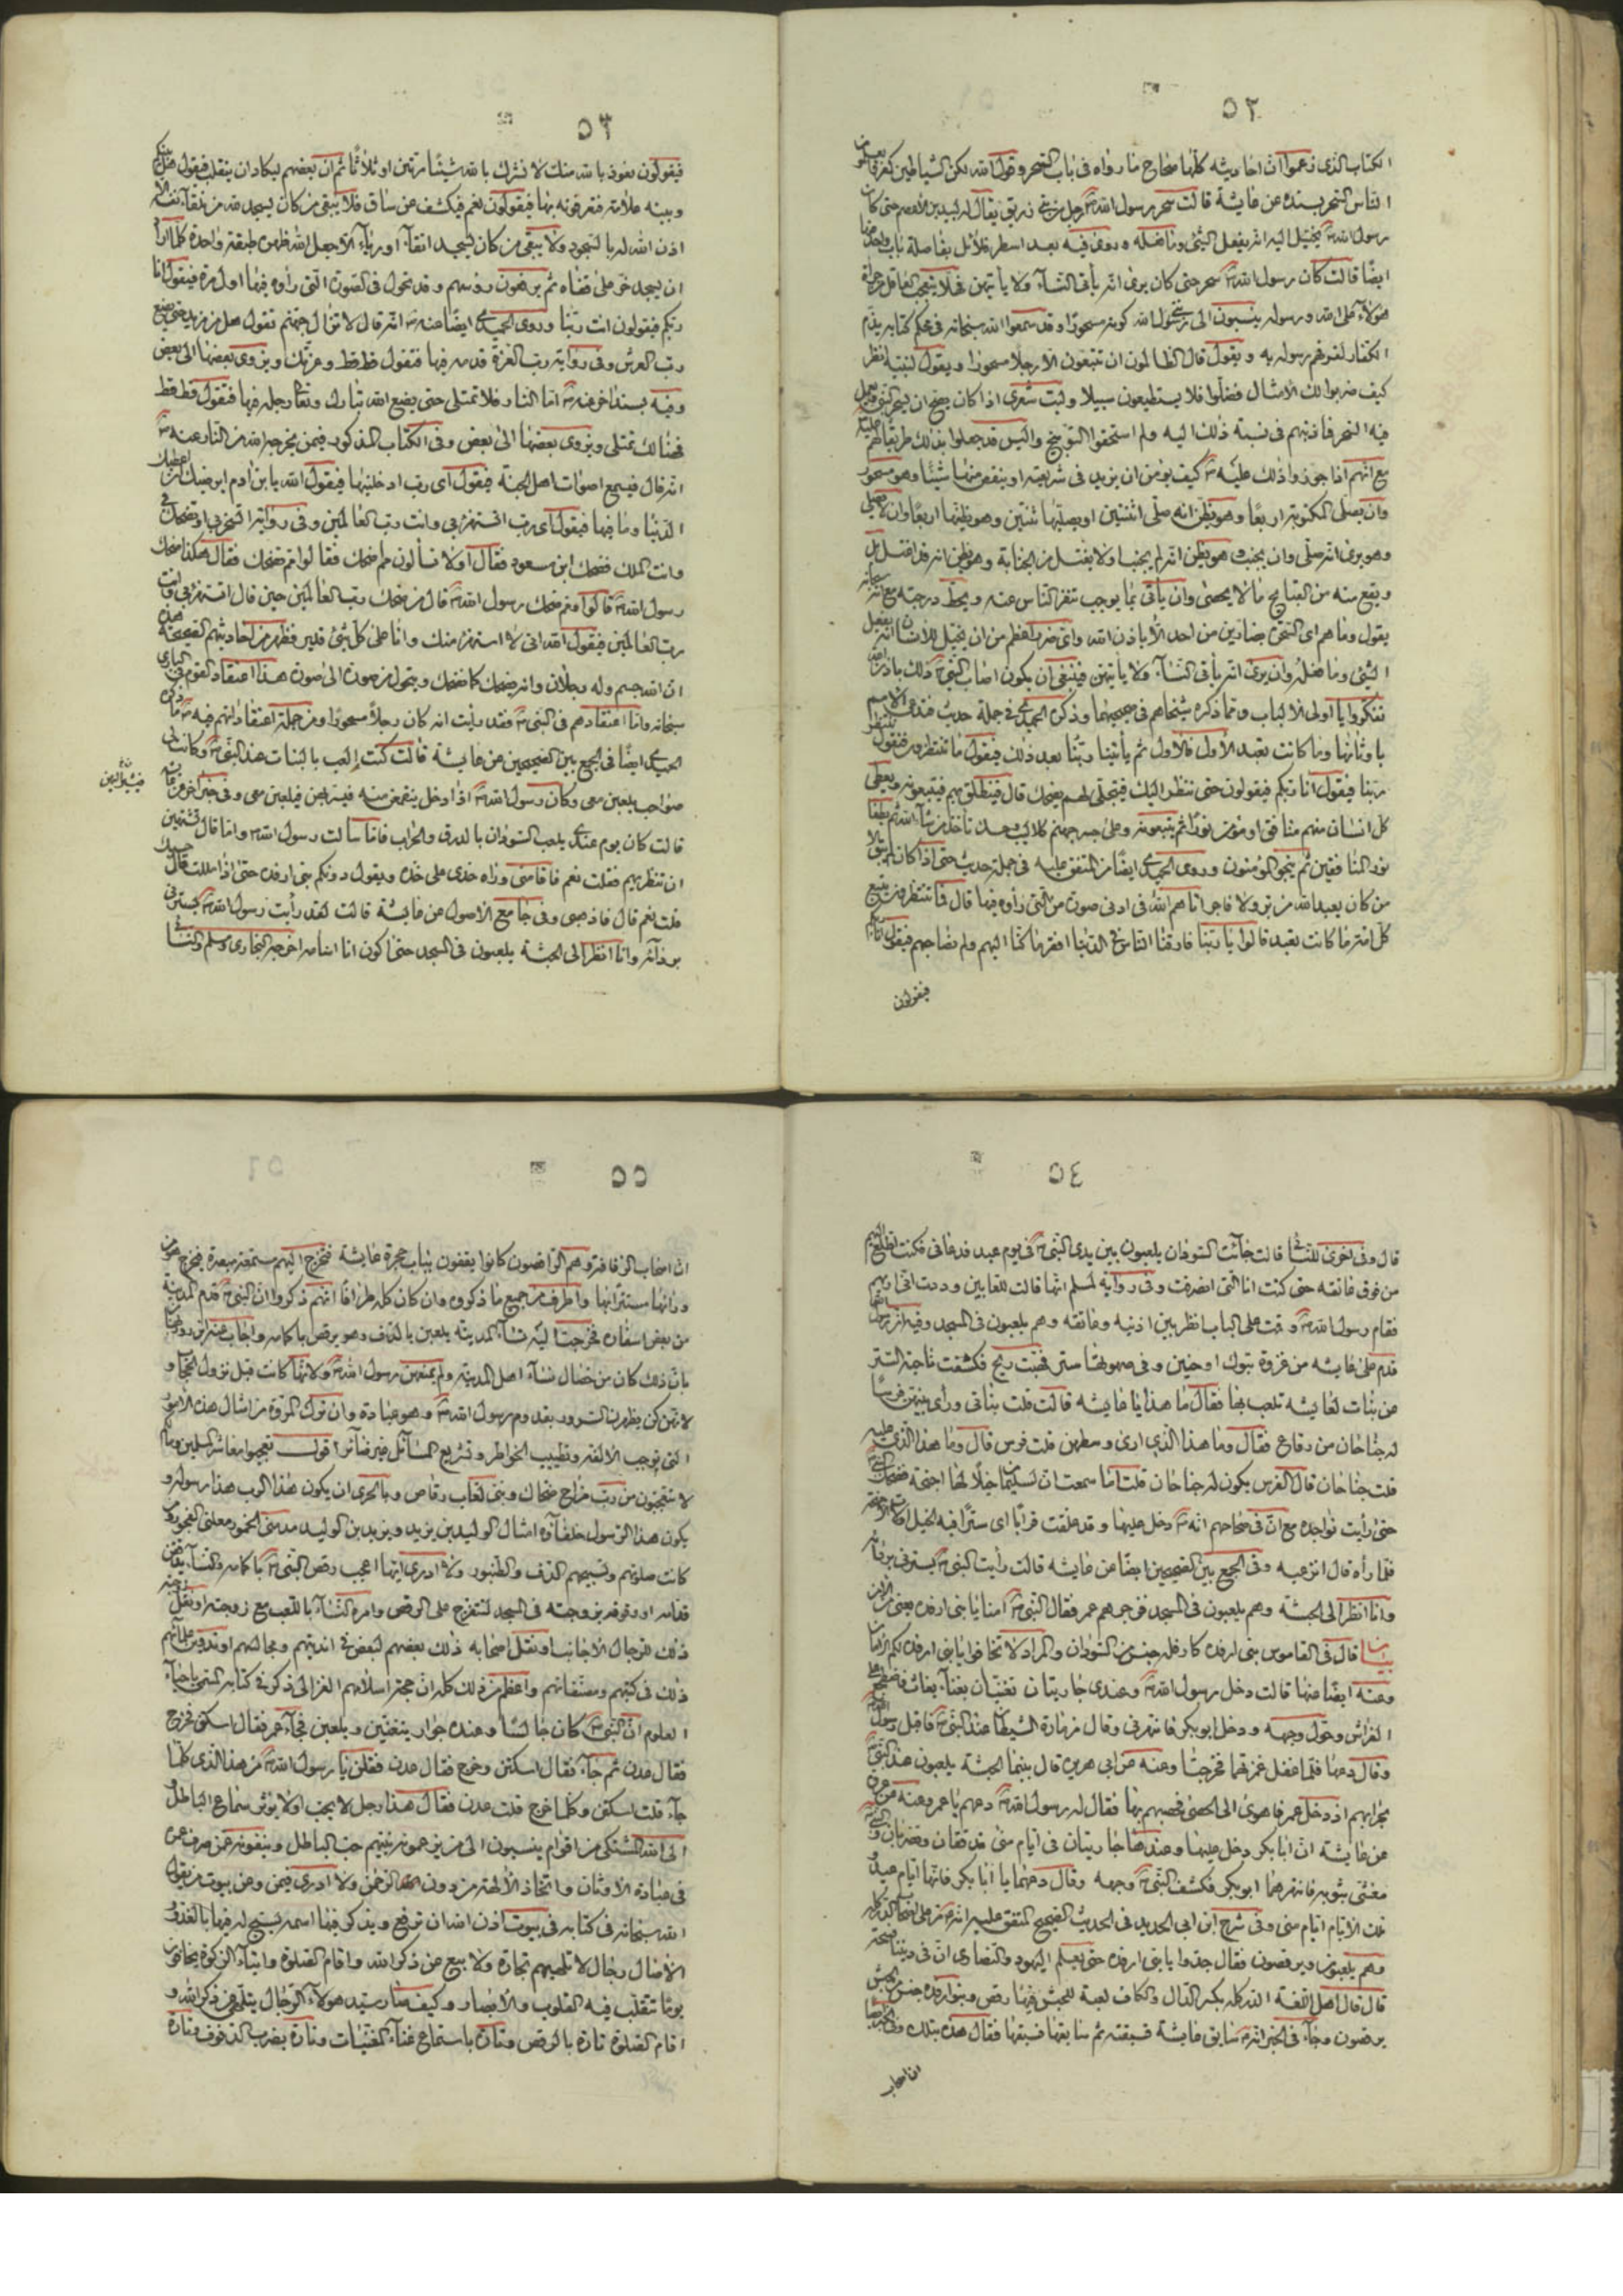 ٥٢
الكتاب الذي زعموا ان احاديثه كلها صحاح ما رواه في باب السحر وقول الله لكن الشياطين كفروا يعلمون
الناس السحر بسنده عن عايشة قالت سحر رسول الله رجل من بني زريق يقال له لبيد بن الاعصم حتى كان
رسول الله يخيل اليه انه يفعل الشئ وما فعله وروى فيه بعد اسطر
ايضا قالت كان رسول الله سحر حتى كان يرى انه يأتي النساء ولا يأتيهن فلا يتعجب العاقل من جرأة
هؤلاء على الله ورسوله ينسبون الى رسول الله كونه مسحورا وقد سمعوا الله سبحانه في محكم كتابه يذم
الكفار لنبوهم رسوله به ويقول قال الظالمون ان تتبعون الا رجلا مسحورا ويقول لنبيه انظر
كيف ضربوا لك الامثال فضلوا فلا يستطيعون سبيلا وليت شعري اذا كان يصح ان يسحر النبي
فيه السحر فما ذنبهم في نسبة ذلك اليه ولم استحقوا التوبيخ واليس قد جعلوا بذلك طريقا لهم
مع انهم اذا جوزوا ذلك عليه كيف يؤمن ان يزيد في شريعته او ينقص منها شيئا وهو مسحور
وان يصلي المكتوبة اربعا وهو يظن انه صلى اثنتين او يصليها ثنتين وهو يظنها اربعا وان لا يصلي
وهو يرى انه صلى وان يجنب وهو يظن انه لم يجنب او لا يغتسل من الجنابة وهو يظن انه قد اغتسل بل
ويقع منه من القبايح ما لا يحصى وان يأتي بما يوجب تنفر الناس عنه ويحط درجته مع انه سبحانه
يقول وما هم اي السحرة بضارين من احد الا باذن الله واي ضرر اعظم من ان يخيل للانسان انه يفعل
الشئ وما فعله وان يرى انه يأتي النساء ولا يأتيهن فينبغي ان يكون اصاب النبي ذلك باذن الله
تفكروا يا اولى الالباب ومما ذكره شيخاهم في صحيحهما وذكره الحميدي في جملة حديث فتدعى الامم
باوثانها وما كانت تعبد الاول فالاول ثم يأتينا ربنا بعد ذلك فيقول ما تنتظرون فنقول ننتظر
ربنا فيقول انا ربكم فيقولون حتى ننظر اليك فيتجلى لهم يضحك قال فينطلق بهم فيتبعونه ويعطى
كل انسان منهم منافق او مؤمن نورا ثم يتبعونه وعلى جسر جهنم كلاليب وحسك تأخذ من شاء الله ثم يطفأ
نور المنافقين ثم ينجو المؤمنون وروى الحميدي ايضا من المتفق عليه في جملة حديث حتى اذا كان لم يبق الا
من كان يعبد الله من بر ولا فاجر اتاهم الله في ادنى صورة من التي رأوه فيها قال فما تنتظرون يتبع
كل امة ما كانت تعبد قالوا يا ربنا فارقنا الناس في الدنيا افقر ما كنا اليهم ولم نصاحبهم فيقول انا ربكم
فيقولون
٥٣
فيقولون نعوذ بالله منك لا نشرك بالله شيئا مرتين او ثلاثا ثم ان بعضهم ليكاد ان ينقلب فيقول هل بينكم
وبينه علامة فتعرفونه بها فيقولون نعم فيكشف عن ساق فلا يبقى من كان يسجد لله من تلقاء نفسه الا
اذن الله له بالسجود ولا يبقى من كان يسجد اتقاء او رياء الا جعل الله ظهره طبقة واحدة كلما اراد
ان يسجد خر على قفاه ثم يرفعون رؤسهم وقد تحول في الصورة التي رأوه فيها اول مرة فيقول انا
ربكم فيقولون انت ربنا وروى الحميدي ايضا عنه انه قال لا تزال جهنم تقول هل من مزيد حتى يضع
رب العرش وفي رواية رب العزة قدمه فيها فتقول قط قط وعزتك ويزوى بعضها الى بعض
وفيه بسند اخر عنه اما النار فلا تمتلى حتى يضع الله تبارك وتعالى رجله فيها فتقول قط قط
فهنالك تمتلى ويزوى بعضها الى بعض وفي الكتاب المذكور فيمن يخرجه الله من النار عنه
انه قال فيسمع اصوات اهل الجنة فيقول اي رب ادخلنيها فيقول الله يا بن ادم ايرضيك ان اعطيك
الدنيا وما فيها فيقول اي رب اتستهزئ بي وانت رب العالمين وفي رواية اتسخر بي او تضحك بي
وانت الملك فضحك ابن مسعود فقال اولا تسألون مم اضحك فقالوا مم تضحك فقال هكذا ضحك
رسول الله قالوا ومم ضحك رسول الله قال من ضحك رب العالمين حين قال اتستهزئ بي وانت
رب العالمين فيقول الله اني لا استهزئ منك وانا على كل شئ قدير فظهر من احاديثهم الصحيحة هذه
ان الله جسم وله رجلان وانه يضحك كما نضحك ويتحول من صورة الى صورة هذا اعتقاد القوم في الباري
سبحانه واما اعتقادهم في النبي فقد رأيت انه كان رجلا مسحورا ومن جملة اعتقاداتهم فيه ما ذكره
الحميدي ايضا في الجمع بين الصحيحين عن عايشة قالت كنت العب بالبنات عند النبي وكانت لي
صواحب يلعبن معي وكان رسول الله اذا دخل ينقمعن منه فيسربهن فيلعبن معي وفي خبر اخر عن عايشة
قالت كان يوم عندي يلعب السودان بالدرق والحراب فاما سألت رسول الله واما قال تشتهين
ان تنظريهم فقلت نعم فاقامني وراه خدي على خده ويقول دونكم بني ارفدة حتى اذا مللت قال حسبك
قلت نعم قال فاذهبي وفي جامع الاصول عن عايشة قالت لقد رأيت رسول الله يسترني
بردائه وانا انظر الى الحبشة يلعبون في المسجد حتى اكون انا اسأمه اخرجه البخاري ومسلم والنسائي
٥٤
قال وفي اخرى للنسائي قالت جاءت السودان يلعبون بين يدي النبي في يوم عيد فدعاني فكنت اطلع اليهم
من فوق عاتقه حتى كنت انا التي انصرفت وفي رواية لمسلم انها قالت للعابين وددت اني اراهم
فقام رسول الله وقمت على الباب انظر بين اذنيه وعاتقه وهم يلعبون في المسجد وفيه ان رسول الله
قدم على عايشه من غزوة تبوك او حنين وفي سهوتها ستر فهبت ريح فكشفت ناحية الستر
عن بنات لعايشه تلعب بها فقال ما هذا يا عايشه قالت قلت بناتي ورأى بينهن فرسا
له جناحان من رقاع فقال وما هذا الذي ارى وسطهن قلت فرس قال وما هذا الذي عليه
قلت جناحان قال الفرس يكون له جناحان قلت اما سمعت ان لسليمان خيلا لها اجنحة فضحك
حتى رأيت نواجذه مع ان في صحاحهم انه دخل عليها وقد علقت قراما اي سترا فيه الخيل
فلما رأه قال انزعيه وفي الجمع بين الصحيحين ايضا عن عايشه قالت رأيت النبي يسترني بردائه
وانا انظر الى الحبشة وهم يلعبون في المسجد فزجرهم عمر فقال النبي امنا يا بني ارفدة يعني من الامن
بيان قال في القاموس بني ارفده كارفله جنس من السودان والمراد لا تخافوا يا بني ارفده لكم الامان
وعنه ايضا عنها قالت دخل رسول الله وعندي جاريتان تغنيان بغناء بعاث فاضطجع على
الفراش وحول وجهه ودخل ابو بكر فانتهرني وقال مزمارة الشيطان عند النبي فاقبل رسول الله
وقال دعها فلما غفل غمزتهما فخرجتا وعنه عن ابي هريره قال بينما الحبشة يلعبون عند النبي
بحرابهم اذ دخل عمر فاهوى الى الحصى فحصبهم بها فقال له رسول الله دعهم يا عمر وعنه عن عروة
عن عايشة ان ابا بكر دخل عليها وعندها جاريتان في ايام منى تدففان وتضربان والنبي
مغشى بثوبه فانتهرهما ابو بكر فكشف النبي وجهه وقال دعهما يا ابا بكر فانها ايام عيد و
تلك الايام ايام منى وفي شرح ابن ابي الحديد في الحديث الصحيح المتفق عليه انه مر على اصحاب الدركله
وهم يلعبون ويرقصون فقال جدوا يا بني ارفدة حتى يعلم اليهود والنصارى ان في ديننا فسحة
قال قال اهل اللغة الدركله بكسر الدال والكاف لعبة للحبش فيها رقص وبنو ارفده جنس من الحبش
يرقصون وجاء في الخبر انه سابق عايشة فسبقته ثم سابقها فسبقها فقال هذه بتلك وفي الخبر ايضا
ان اصحاب
٥٥
ان اصحاب الزفافة وهم الراقصون كانوا يقفون بباب حجرة عايشة فتخرج اليهم مستمعة مبصرة فيخرج هو من
ورائها مستترا بها واطرف من جميع ما ذكروه وان كان كله طرافا انهم ذكروا ان النبي قدم المدينة
من بعض اسفاره فخرجت اليه نساء المدينه يلعبن بالدف وهو يرقص باكمامه واجاب عنه ابن روزبهان
بان ذلك كان من خصال نساء اهل المدينة ولم يمنعهن رسول الله ولانها كانت قبل نزول الحجاب و
لانهن كن يظهرن السرور بقدوم رسول الله وهو عبادة وان ترك المروة من امثال هذه الامور
التي توجب الالفة وتطييب الخواطر وتشريع المسائل غير ضائر اقول تعجبوا معاشر المسلمين وما لكم
لا تتعجبون من رب مزاح ضحاك ونبي لعاب رقاص وبالحرى ان يكون هذا الرب هذا رسوله و
يكون هذا الرسول خلفاؤه امثال الوليد بن يزيد ويزيد بن الوليد مدمني الخمور معلني الفجور
كانت صلوتهم وتسبيحهم الدف والطنبور ولا ادري ايها اعجب رقص النبي باكمامه والنساء
قدامه او وقوفه بزوجته في المسجد لتتفرج على الرقص وامره النساء باللعب مع زوجته او نقل زوجته
ذلك للرجال الاجانب او نقل اصحابه ذلك بعضهم لبعض في انديتهم ومجالسهم او تدوين علمائهم
ذلك في كتبهم ومصنفاتهم واعظم من ذلك كله ان حجة اسلامهم الغزالى ذكر في كتابه المسمى باحياء
العلوم ان النبي كان جالسا وعنده جوار يتغنين ويلعبن فجاء عمر فقال اسكتن فخرج
فقال عدن ثم جاء فقال اسكتن وخرج فقال عدن فقلن يا رسول الله من هذا الذي كلما
جاء قلت اسكتن وكلما خرج قلت عدن فقال هذا رجل لا يحب او لا يؤثر سماع الباطل
الى الله المشتكى من اقوام ينسبون الى من يزعمونه نبيهم حب الباطل وينفونه عمن صرف عمره
في عبادة الاوثان واتخاذ الآلهة من دون الرحمن ولا ادري فيمن وعن بيوت من يقول
الله سبحانه في كتابه في بيوت اذن الله ان ترفع ويذكر فيها اسمه يسبح له فيها بالغدو و
الاصال رجال لا تلهيهم تجارة ولا بيع عن ذكر الله واقام الصلوة وايتاء الزكوة يخافون
يوما تتقلب فيه القلوب والابصار وكيف صار سيد هؤلاء الرجال يتلهى عن ذكر الله و
اقام الصلوة تارة بالرقص وتارة باستماع غناء المغنيات وتارة بضرب الدفوف وتارة